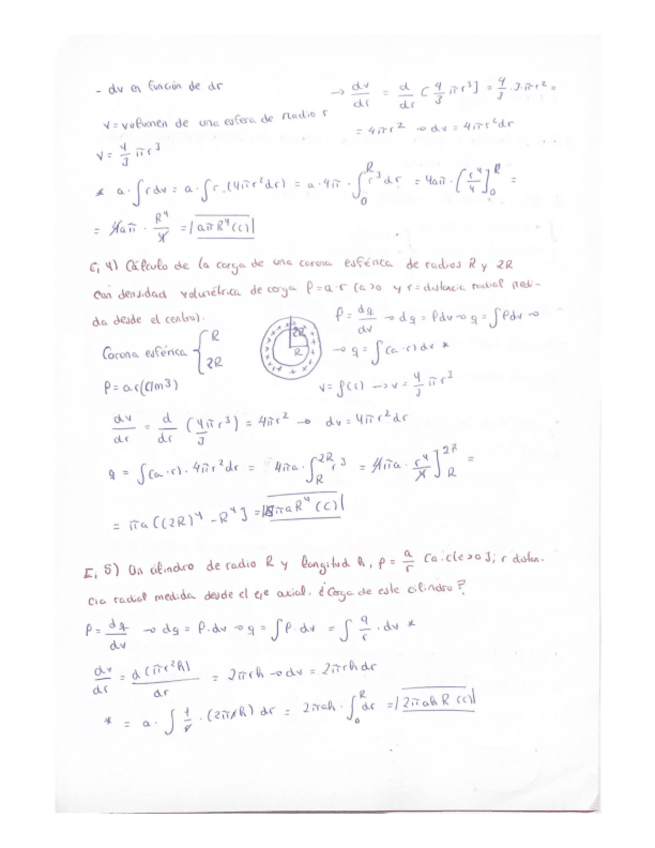 - dv en función de dr
→ dv/dr = d/dr [4/3 πr³] = 4/3 · 3 · πr² =
v = volumen de una esfera de radio r
= 4πr² → dv = 4πr²dr
v = 4/3 πr³
* a·∫rdv = a·∫r·(4πr²dr) = a·4π·∫₀ᴿ r³dr = 4aπ·[r⁴/4]₀ᴿ =
= 4aπ · R⁴/4 = |aπR⁴(C)|
E, 4) Cálculo de la carga de una corona esférica de radios R y 2R
con densidad volumétrica de carga ρ=a·r (a>0 y r=distancia radial medi-
da desde el centro).
ρ = dq/dv → dq = ρdv → q = ∫ρdv →
Corona esférica { R
2R
2R
R
→ q = ∫(a·r)dv *
ρ = ar(C/m³)
v = f(r) → v = 4/3 πr³
dv/dr = d/dr (4πr³/3) = 4πr² → dv = 4πr²dr
q = ∫(a·r)·4πr²dr = 4πa·∫_R^2R r³ = 4πa · r⁴/4]_R^2R =
= πa[(2R)⁴ - R⁴] = |15πaR⁴(C)|
E, 5) Un cilindro de radio R y longitud h, ρ = a/r (a·cte>0); r distan.
cia radial medida desde el eje axial. ¿Carga de este cilindro?
ρ = dq/dv → dq = ρ·dv → q = ∫ρ·dv = ∫ a/r · dv *
dv/dr = d(πr²h)/dr = 2πrh → dv = 2πrhdr
* = a·∫ 1/r · (2πrh) dr = 2πah·∫₀ᴿ dr = |2πahR (C)|